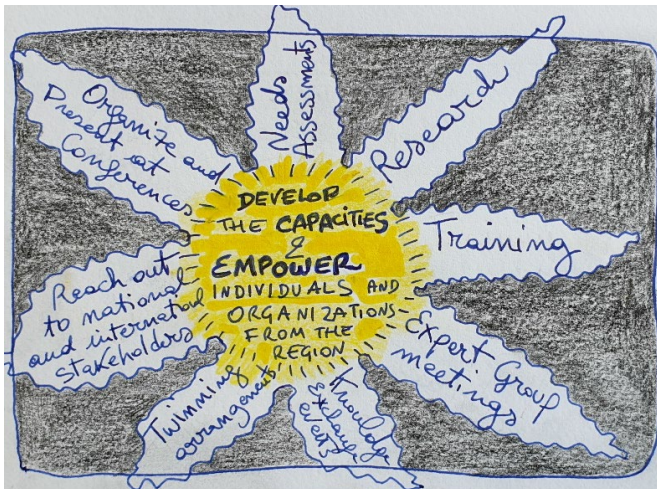 DEVELOP
THE CAPACITIES
&
EMPOWER
INDIVIDUALS AND
ORGANIZATIONS
FROM THE
REGION
Needs
Assessments
Research
Training
Expert Group
meetings
Knowledge
exchange
events
Twinning
arrangements
Reach out
to national
and international
stakeholders
Organize and
Present at
Conferences